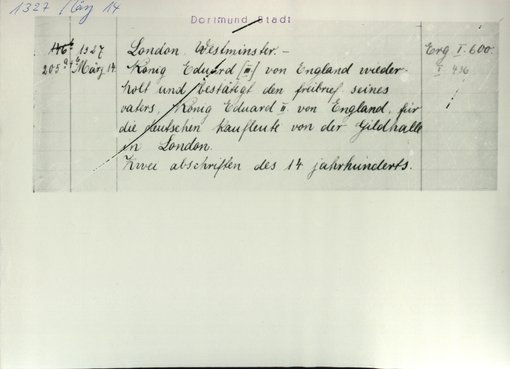 1327 März 14
Dortmund Stadt
1327
März 14.
London. Westminster. –
König Eduard [III] von England wieder-
holt und bestätigt den freibrief seines
vaters, König Eduard II. von England, für
die deutschen kaufleute von der Gildhalle
in London.
Zwei abschriften des 14 jahrhunderts.
Erg I. 600.
I 436